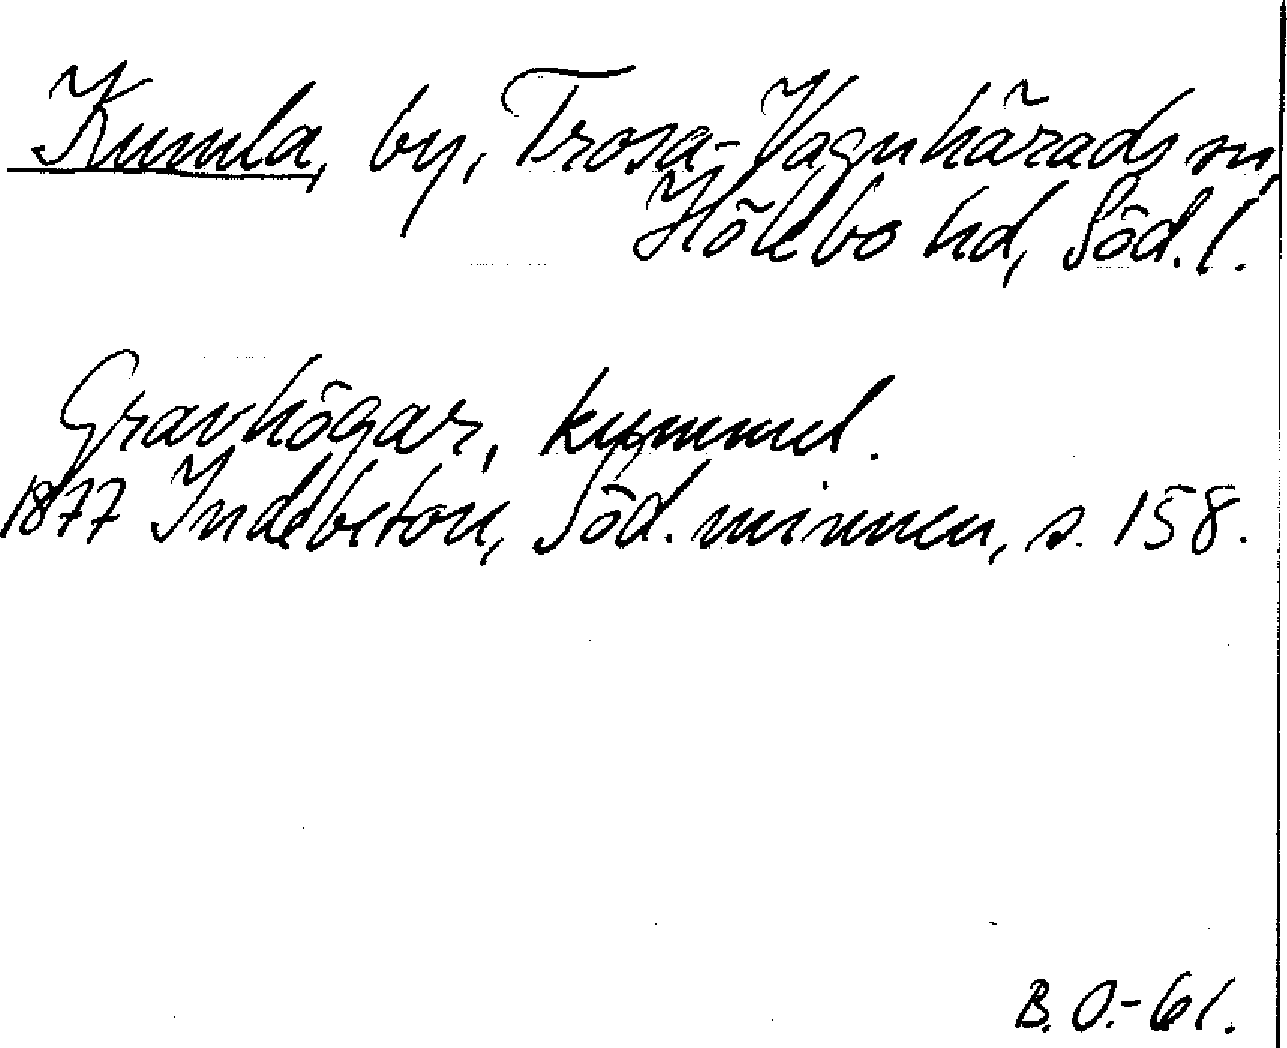 Kumla, by, Trosa-Vagnhärads sn,
Hölebo hd, Söd. l.
Gravhögar, kummel.
1877 Indebetou, Söd. minnen, s. 158.
B. O.-61.